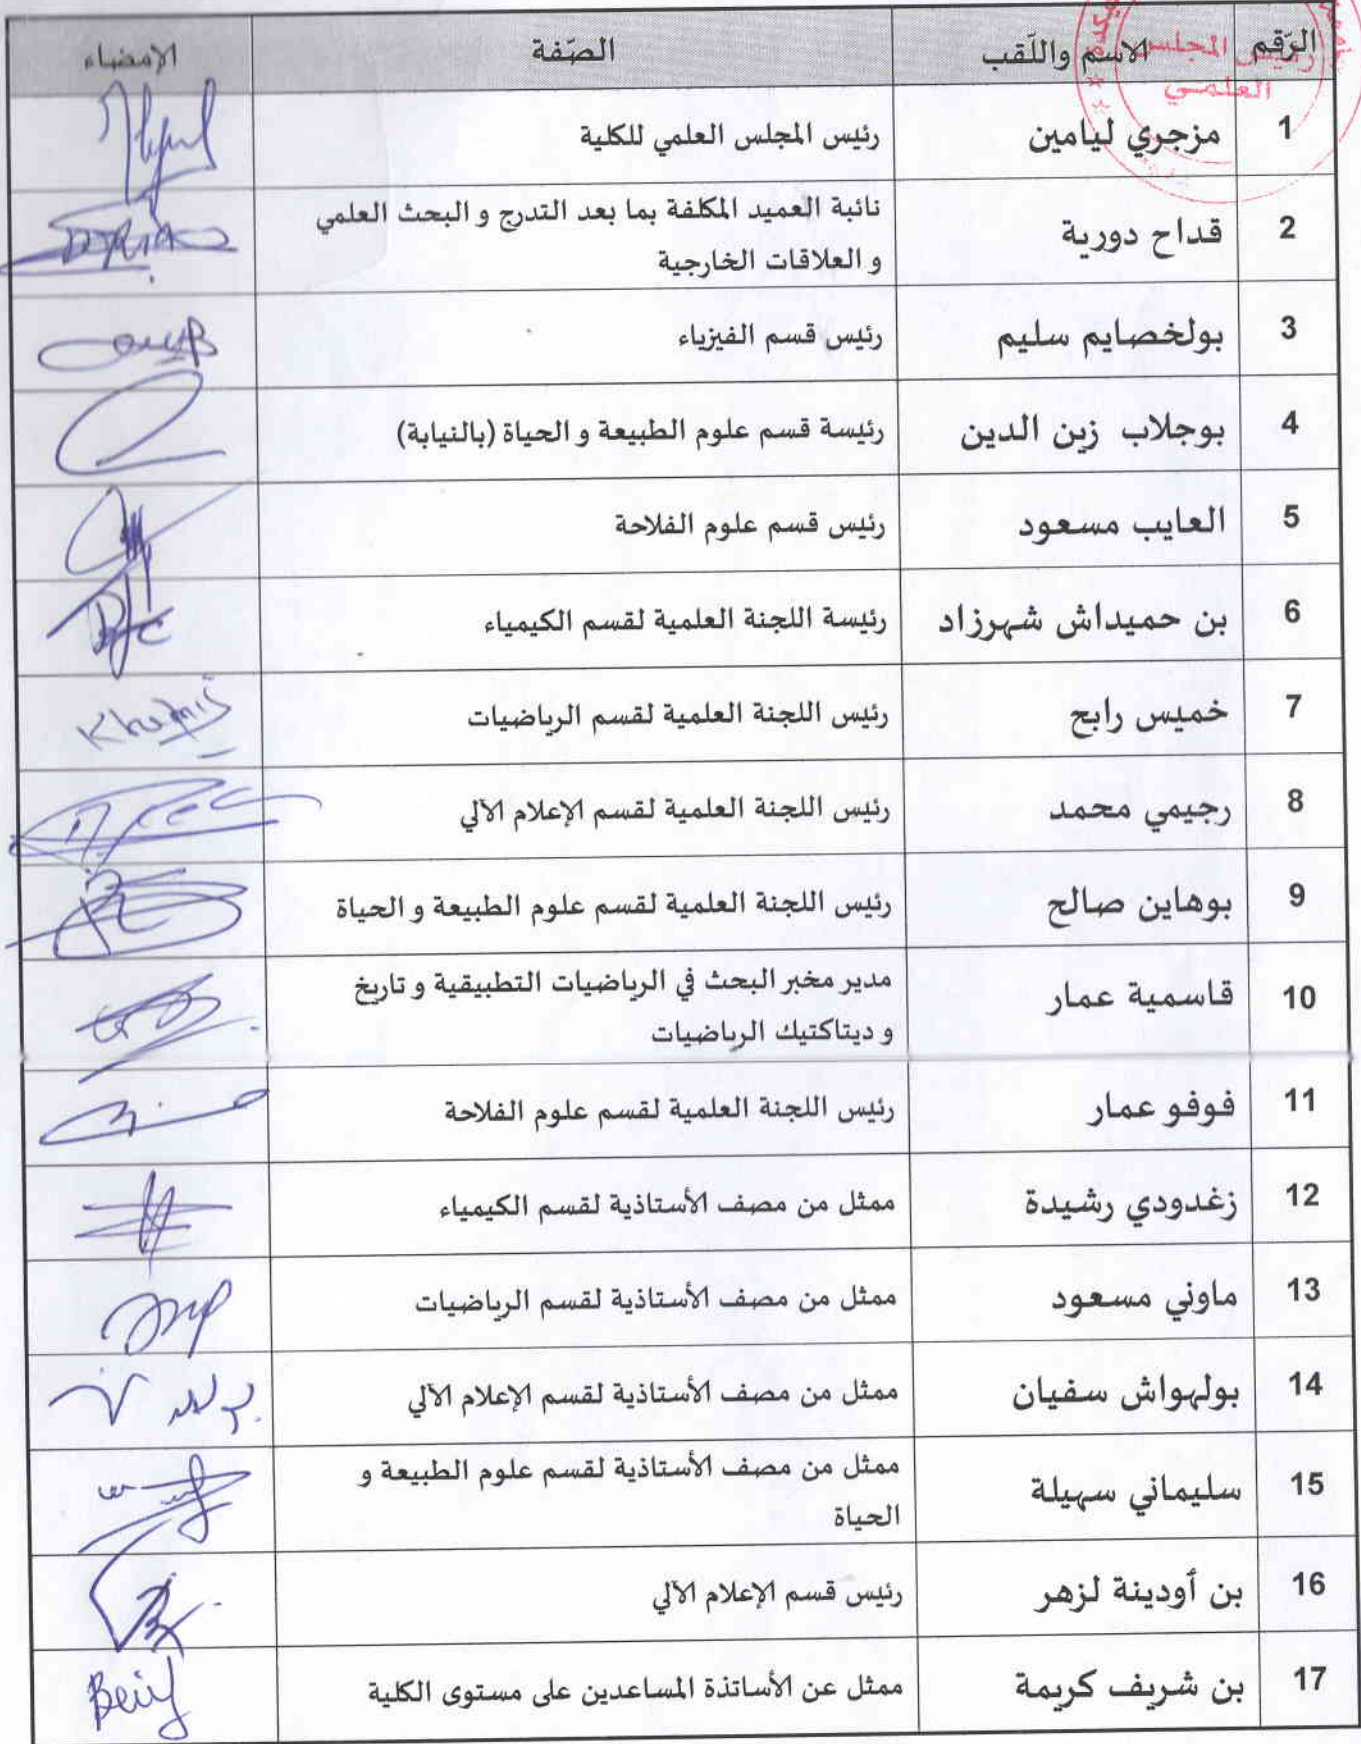 الرّقم الاسم واللّقب الصّفة الإمضاء
رئيس المجلس
العلمي
1 مزجري ليامين رئيس المجلس العلمي للكلية
2 قداح دورية نائبة العميد المكلفة بما بعد التدرج و البحث العلمي
و العلاقات الخارجية
3 بولخصايم سليم رئيس قسم الفيزياء
4 بوجلاب زين الدين رئيسة قسم علوم الطبيعة و الحياة (بالنيابة)
5 العايب مسعود رئيس قسم علوم الفلاحة
6 بن حميداش شهرزاد رئيسة اللجنة العلمية لقسم الكيمياء
7 خميس رابح رئيس اللجنة العلمية لقسم الرياضيات Khemis
8 رجيمي محمد رئيس اللجنة العلمية لقسم الإعلام الآلي
9 بوهاين صالح رئيس اللجنة العلمية لقسم علوم الطبيعة و الحياة
10 قاسمية عمار مدير مخبر البحث في الرياضيات التطبيقية و تاريخ
و ديتاكتيك الرياضيات
11 فوفو عمار رئيس اللجنة العلمية لقسم علوم الفلاحة
12 زغدودي رشيدة ممثل من مصف الأستاذية لقسم الكيمياء
13 ماوني مسعود ممثل من مصف الأستاذية لقسم الرياضيات
14 بولهواش سفيان ممثل من مصف الأستاذية لقسم الإعلام الآلي
15 سليماني سهيلة ممثل من مصف الأستاذية لقسم علوم الطبيعة و
الحياة
16 بن أودينة لزهر رئيس قسم الإعلام الآلي
17 بن شريف كريمة ممثل عن الأساتذة المساعدين على مستوى الكلية